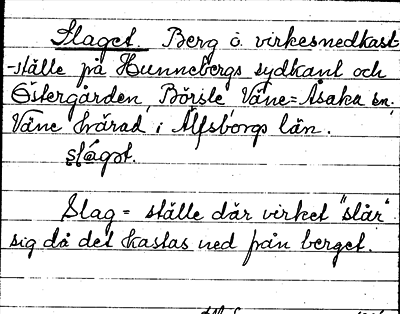 Slaget. Berg o. virkesnedkast-
-ställe på Hunnebergs sydkant och
Östergården, Börsle Väne=Åsaka sn,
Väne härad i Älfsborgs län.
slágət.
Slag = ställe där virket "slår"
sig då det kastas ned från berget.